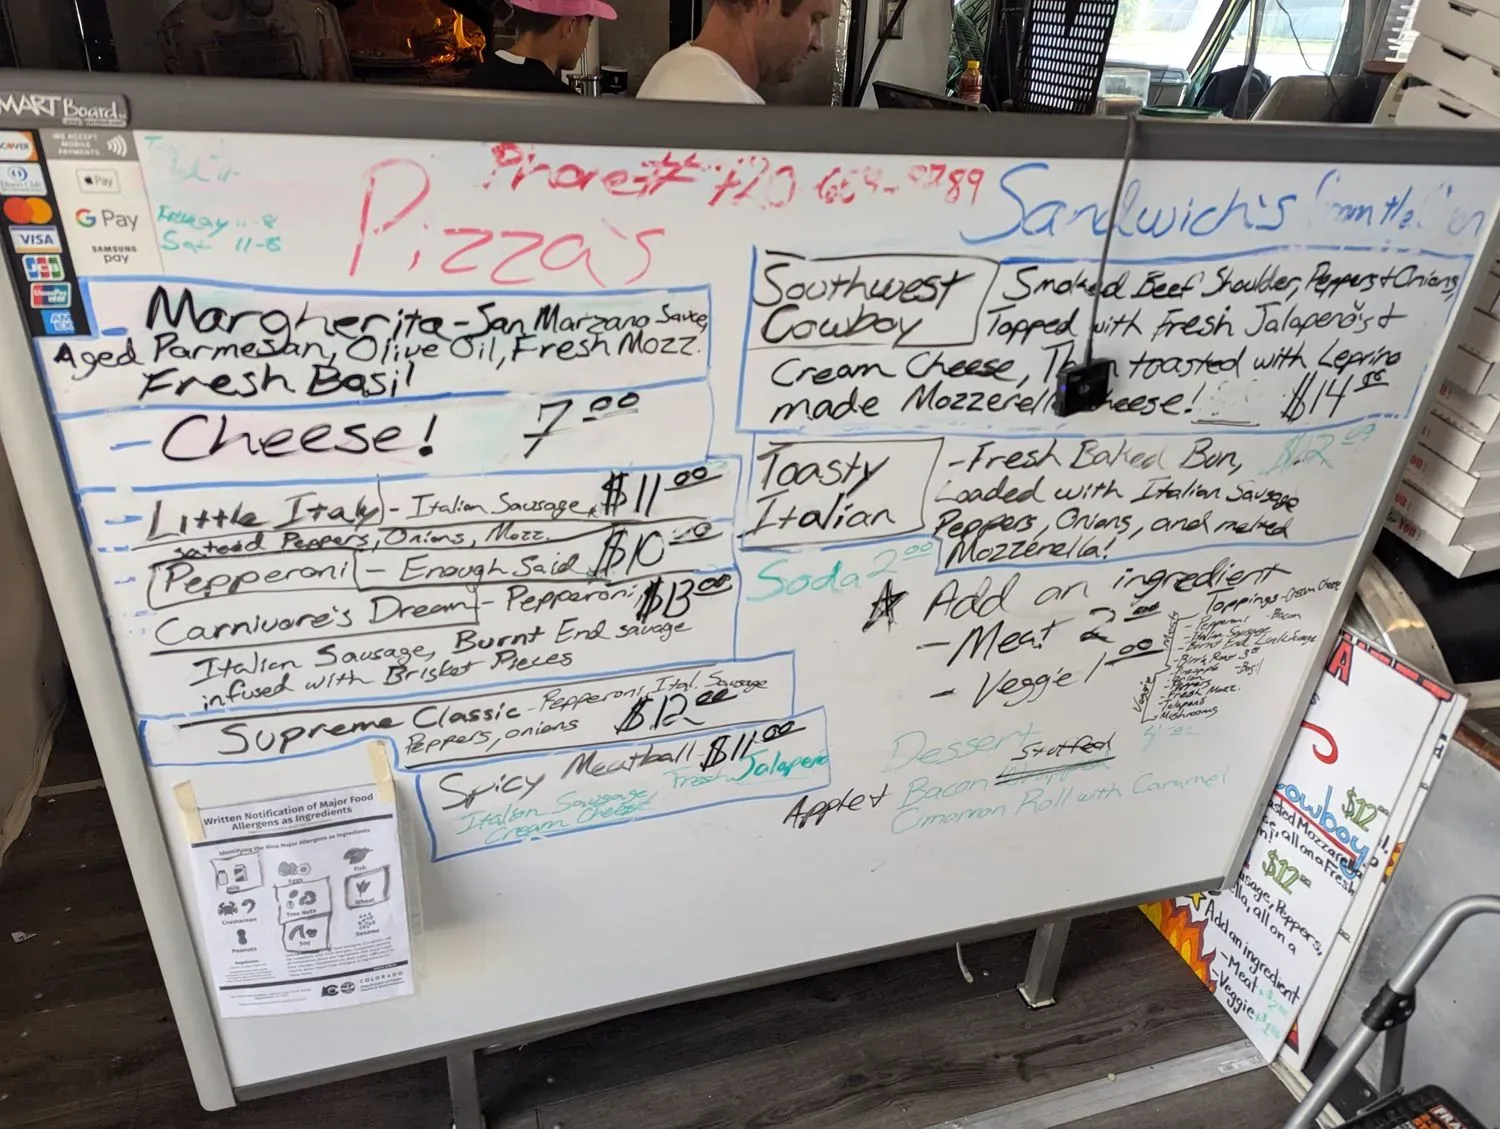 SMART Board
DISCOVER
Diners Club
VISA
JCB
UnionPay
AM EX
WE ACCEPT
MOBILE
PAYMENTS
Pay
G Pay
SAMSUNG
pay
Friday 11-8
Sat 11-8
Pizza's
Phone #
Sandwich's from the
- Margherita - San Marzano Sauce,
Aged Parmesan, Olive Oil, Fresh Mozz.
Fresh Basil
- Cheese! 7.00
- Little Italy - Italian Sausage, $11.00
Peppers, Onions, Mozz.
- Pepperoni - Enough Said $10.00
- Carnivore's Dream - Pepperoni $13.00
Italian Sausage, Burnt End sausage
infused with Brisket Pieces
Supreme Classic - Pepperoni, Ital. Sausage
Peppers, onions $12.00
Spicy Meatball $11.00
Italian Sausage, Fresh Jalapeno
Cream Cheese
Southwest
Cowboy
Smoked Beef Shoulder, Peppers + Onions,
Topped with Fresh Jalapeño's +
Cream Cheese, toasted with Leprino
made Mozzerella Cheese! $14.00
Toasty
Italian
- Fresh Baked Bun, $12.00
Loaded with Italian Sausage
Peppers, Onions, and melted
Mozzerella!
Soda 2.00
☆ Add an ingredient
- Meat 2.00
- Veggie 1.00
Toppings - Cream Cheese
Meats
- Pepperoni - Bacon
- Italian Sausage
- Burnt End Link Sausage
Veggie
- Pineapple - Basil
- Onion
- Peppers
- Fresh Mozz.
- Jalapeno
- Mushrooms
Dessert
Apple + Bacon Stuffed
Cinnamon Roll with Caramel
Written Notification of Major Food
Allergens as Ingredients
Identifying the Nine Major Allergens as Ingredients
Milk
Eggs
Fish
Crustacean
Tree Nuts
Wheat
Peanuts
Soy
Sesame
COLORADO
Cowboy $12.00
Mozzarella
all on a Fresh
$12.00
Sausage, Peppers,
all on a
Add an ingredient
- Meat
- Veggie